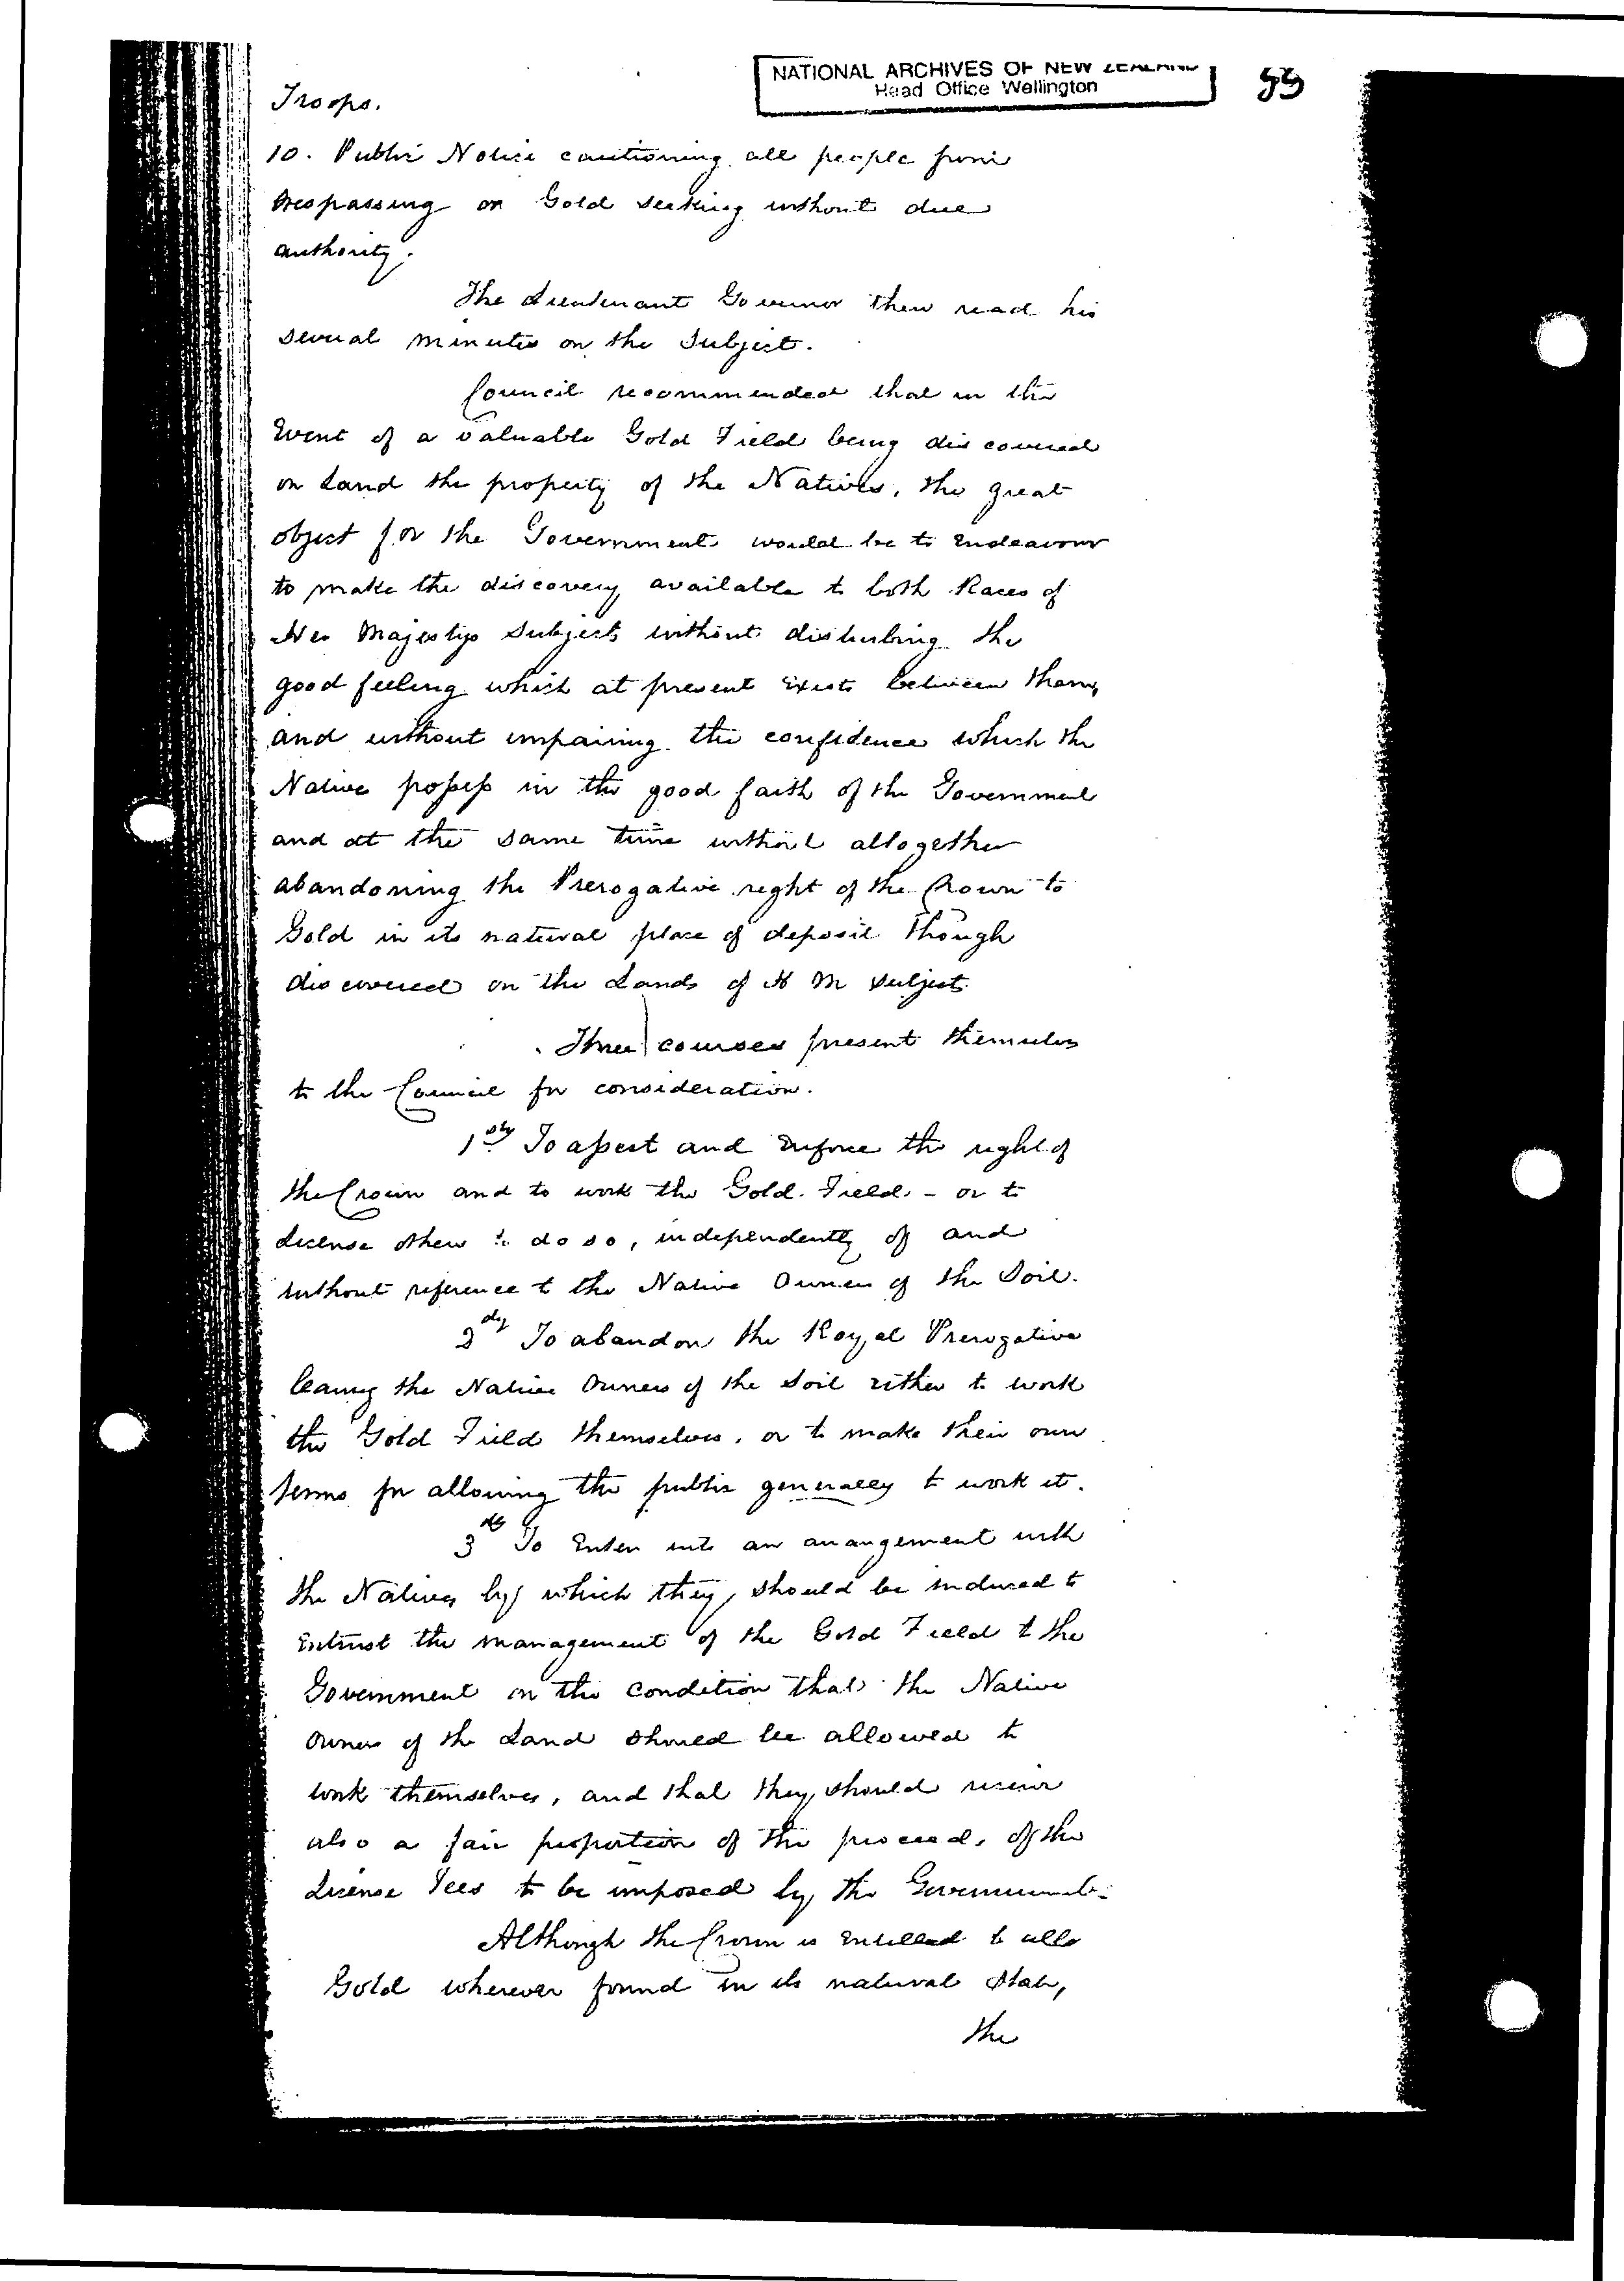 NATIONAL ARCHIVES OF NEW ZEALAND
Head Office Wellington
Troops.
10. Public Notice cautioning all people from
trespassing or Gold seeking without due
authority.
The Lieutenant Governor then read his
several minutes on the Subject.
Council recommended that in the
Event of a valuable Gold Field being discovered
on Land the property of the Natives, the great
object for the Government would be to Endeavour
to make the discovery available to both Races of
Her Majestys Subjects without disturbing the
good feeling which at present Exists between them,
and without impairing the confidence which the
Native possess in the good faith of the Government
and at the same time without altogether
abandoning the Prerogative right of the Crown to
Gold in its natural place of deposit though
discovered on the Lands of H M Subject.
Three courses present themselves
to the Council for consideration.
1stly To assert and Enforce the right of
the Crown and to work the Gold Field - or to
License others to do so, independently of and
without reference to the Native Owners of the Soil.
2dly To abandon the Royal Prerogative
leaving the Native Owners of the Soil either to work
the Gold Field themselves, or to make their own
terms for allowing the public generally to work it.
3 To Enter into an arrangement with
the Natives by which they should be induced to
Entrust the management of the Gold Field to the
Government on the condition that the Native
Owners of the Land should be allowed to
work themselves, and that they should receive
also a fair proportion of the proceeds of the
License Fees to be imposed by the Government.
Although the Crown is Entitled to all
Gold wherever found in its natural State,
the